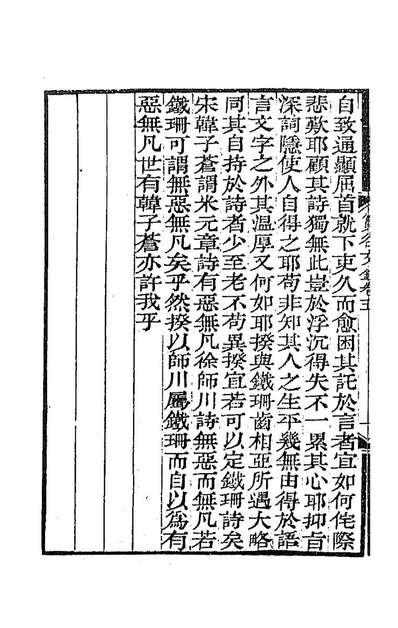 自致通顯屈首就下吏久而愈困其託於言者宜如何侘際
悲歎耶顧其詩獨無此豈於浮沉得失不一累其心耶抑旨
深詞隱使人自得之耶苟非知其人之生平幾無由得於語
言文字之外其溫厚又何如耶揆與鐵珊齒相亞所遇大略
同其自持於詩者少至老不苟異揆宜若可以定鐵珊詩矣
宋韓子蒼謂米元章詩有惡無凡徐師川詩無惡而無凡若
鐵珊可謂無惡無凡矣乎然揆以師川屬鐵珊而自以為有
惡無凡世有韓子蒼亦許我乎